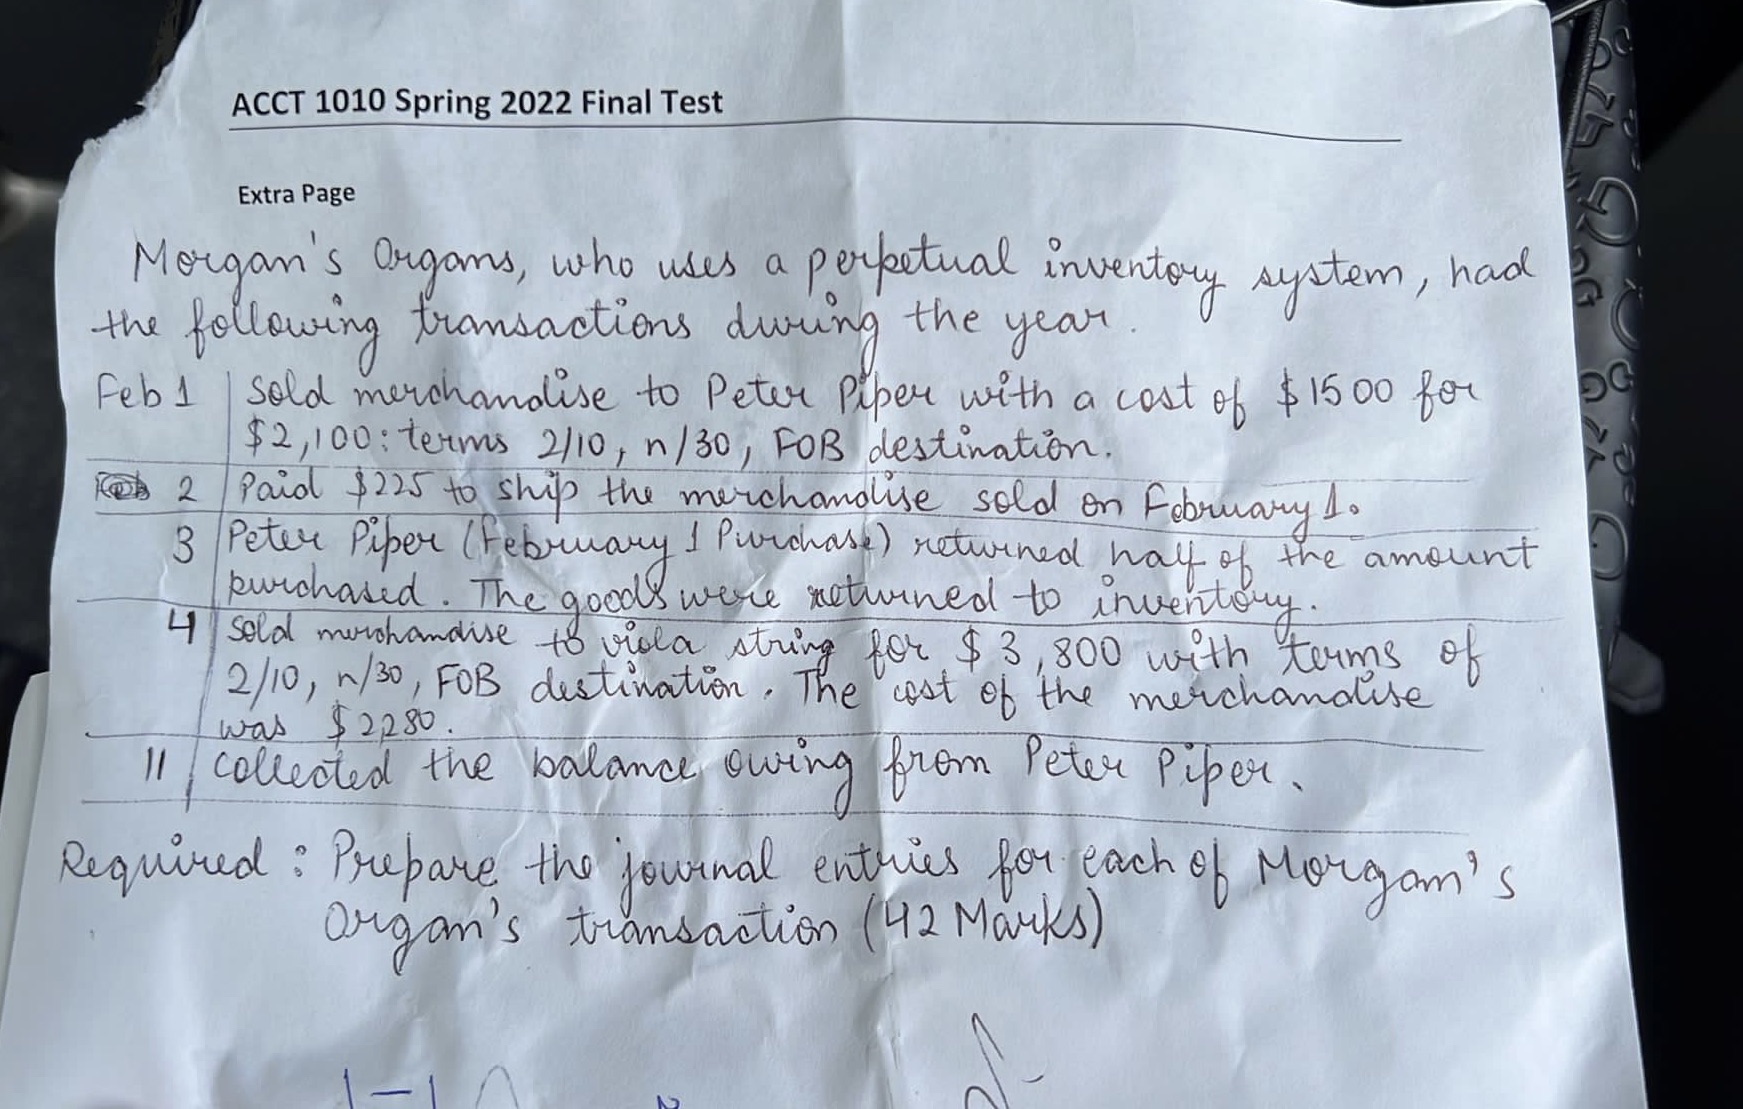 ACCT 1010 Spring 2022 Final Test
Extra Page
Morgan's Organs, who uses a perpetual inventory system, had
the following transactions during the year.
Feb 1 Sold merchandise to Peter Piper with a cost of $1500 for
$2,100: terms 2/10, n/30, FOB destination.
2 Paid $225 to ship the merchandise sold on February 1.
3 Peter Piper (February 1 Purchase) returned half of the amount
purchased. The goods were returned to inventory.
4 Sold merchandise to viola string for $3,800 with terms of
2/10, n/30, FOB destination. The cost of the merchandise
was $2,280.
11 Collected the balance owing from Peter Piper.
Required: Prepare the journal entries for each of Morgan's
Organ's transaction (42 Marks)